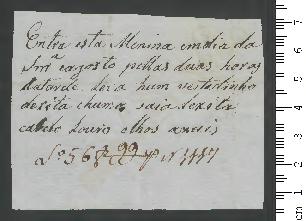 Entra esta Menina em dia da
Snrª eagosto pellas duas horas
datarde. Leva hum vestidinho
dexita e huma saia dexita
cabelo Louro olhos azuis
Lº 56 f 99